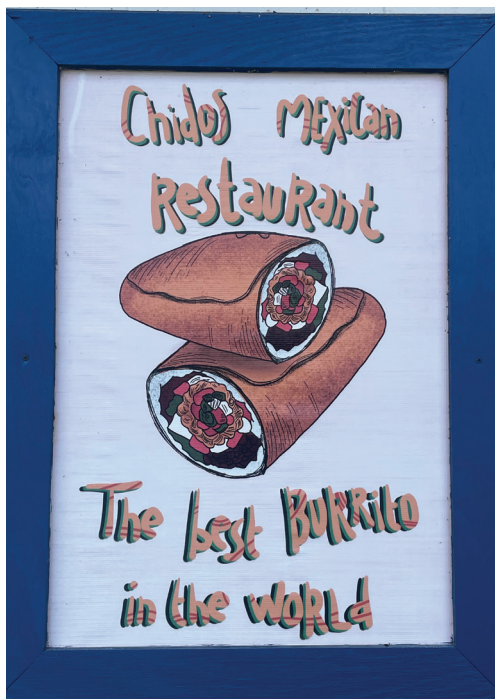 Chidos Mexican
Restaurant
The best Burrito
in the world